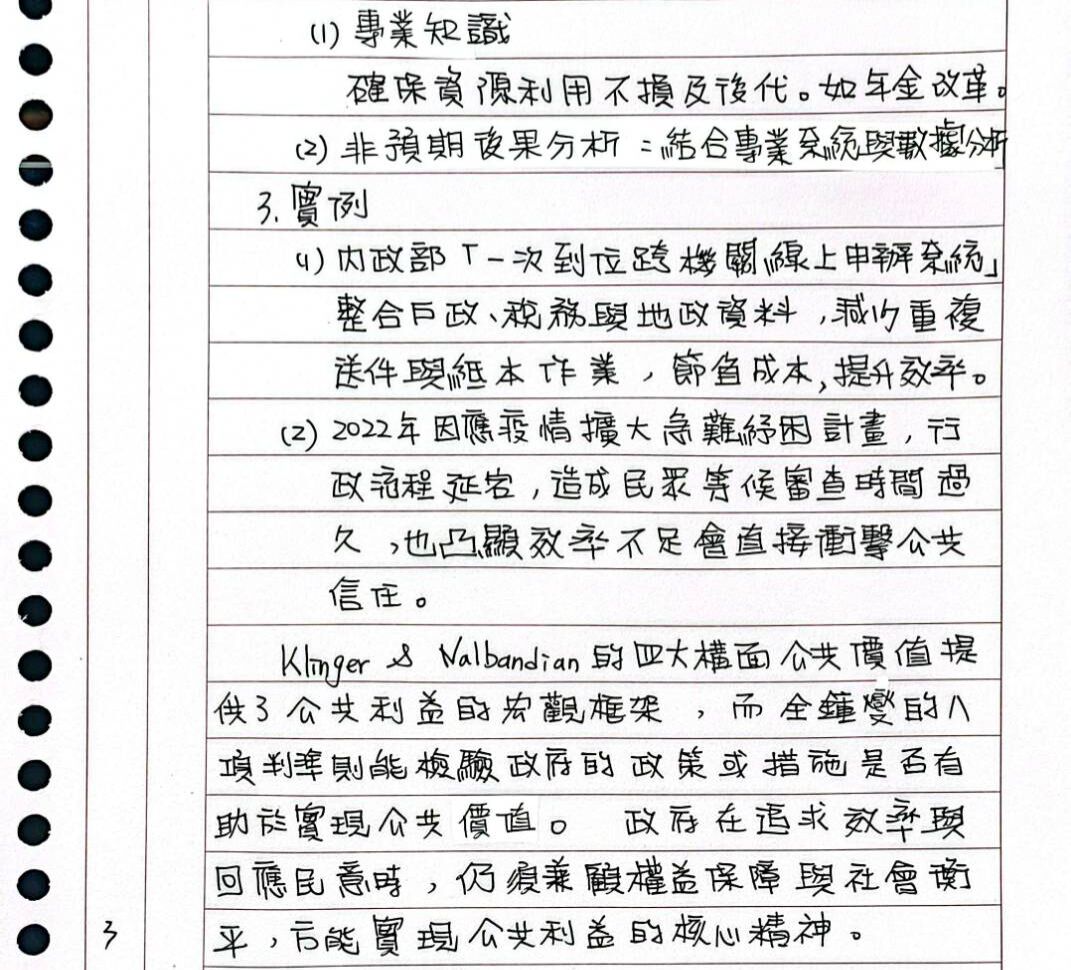 (1) 專業知識
確保資源利用不損及後代。如年金改革。
(2) 非預期後果分析：結合專業系統與數據分析
3. 實例
(1) 內政部「一次到位跨機關線上申辦系統」
整合戶政、稅務與地政資料，減少重複
送件與紙本作業，節省成本，提升效率。
(2) 2022年因應疫情擴大急難紓困計畫，行
政流程延宕，造成民眾等候審查時間過
久，也凸顯效率不足會直接衝擊公共
信任。
Klinger & Nalbandian的四大構面公共價值提
供了公共利益的宏觀框架，而全鍾燮的八
項判準則能檢驗政府的政策或措施是否有
助於實現公共價值。 政府在追求效率與
回應民意時，仍須兼顧權益保障與社會衡
3 平，方能實現公共利益的核心精神。